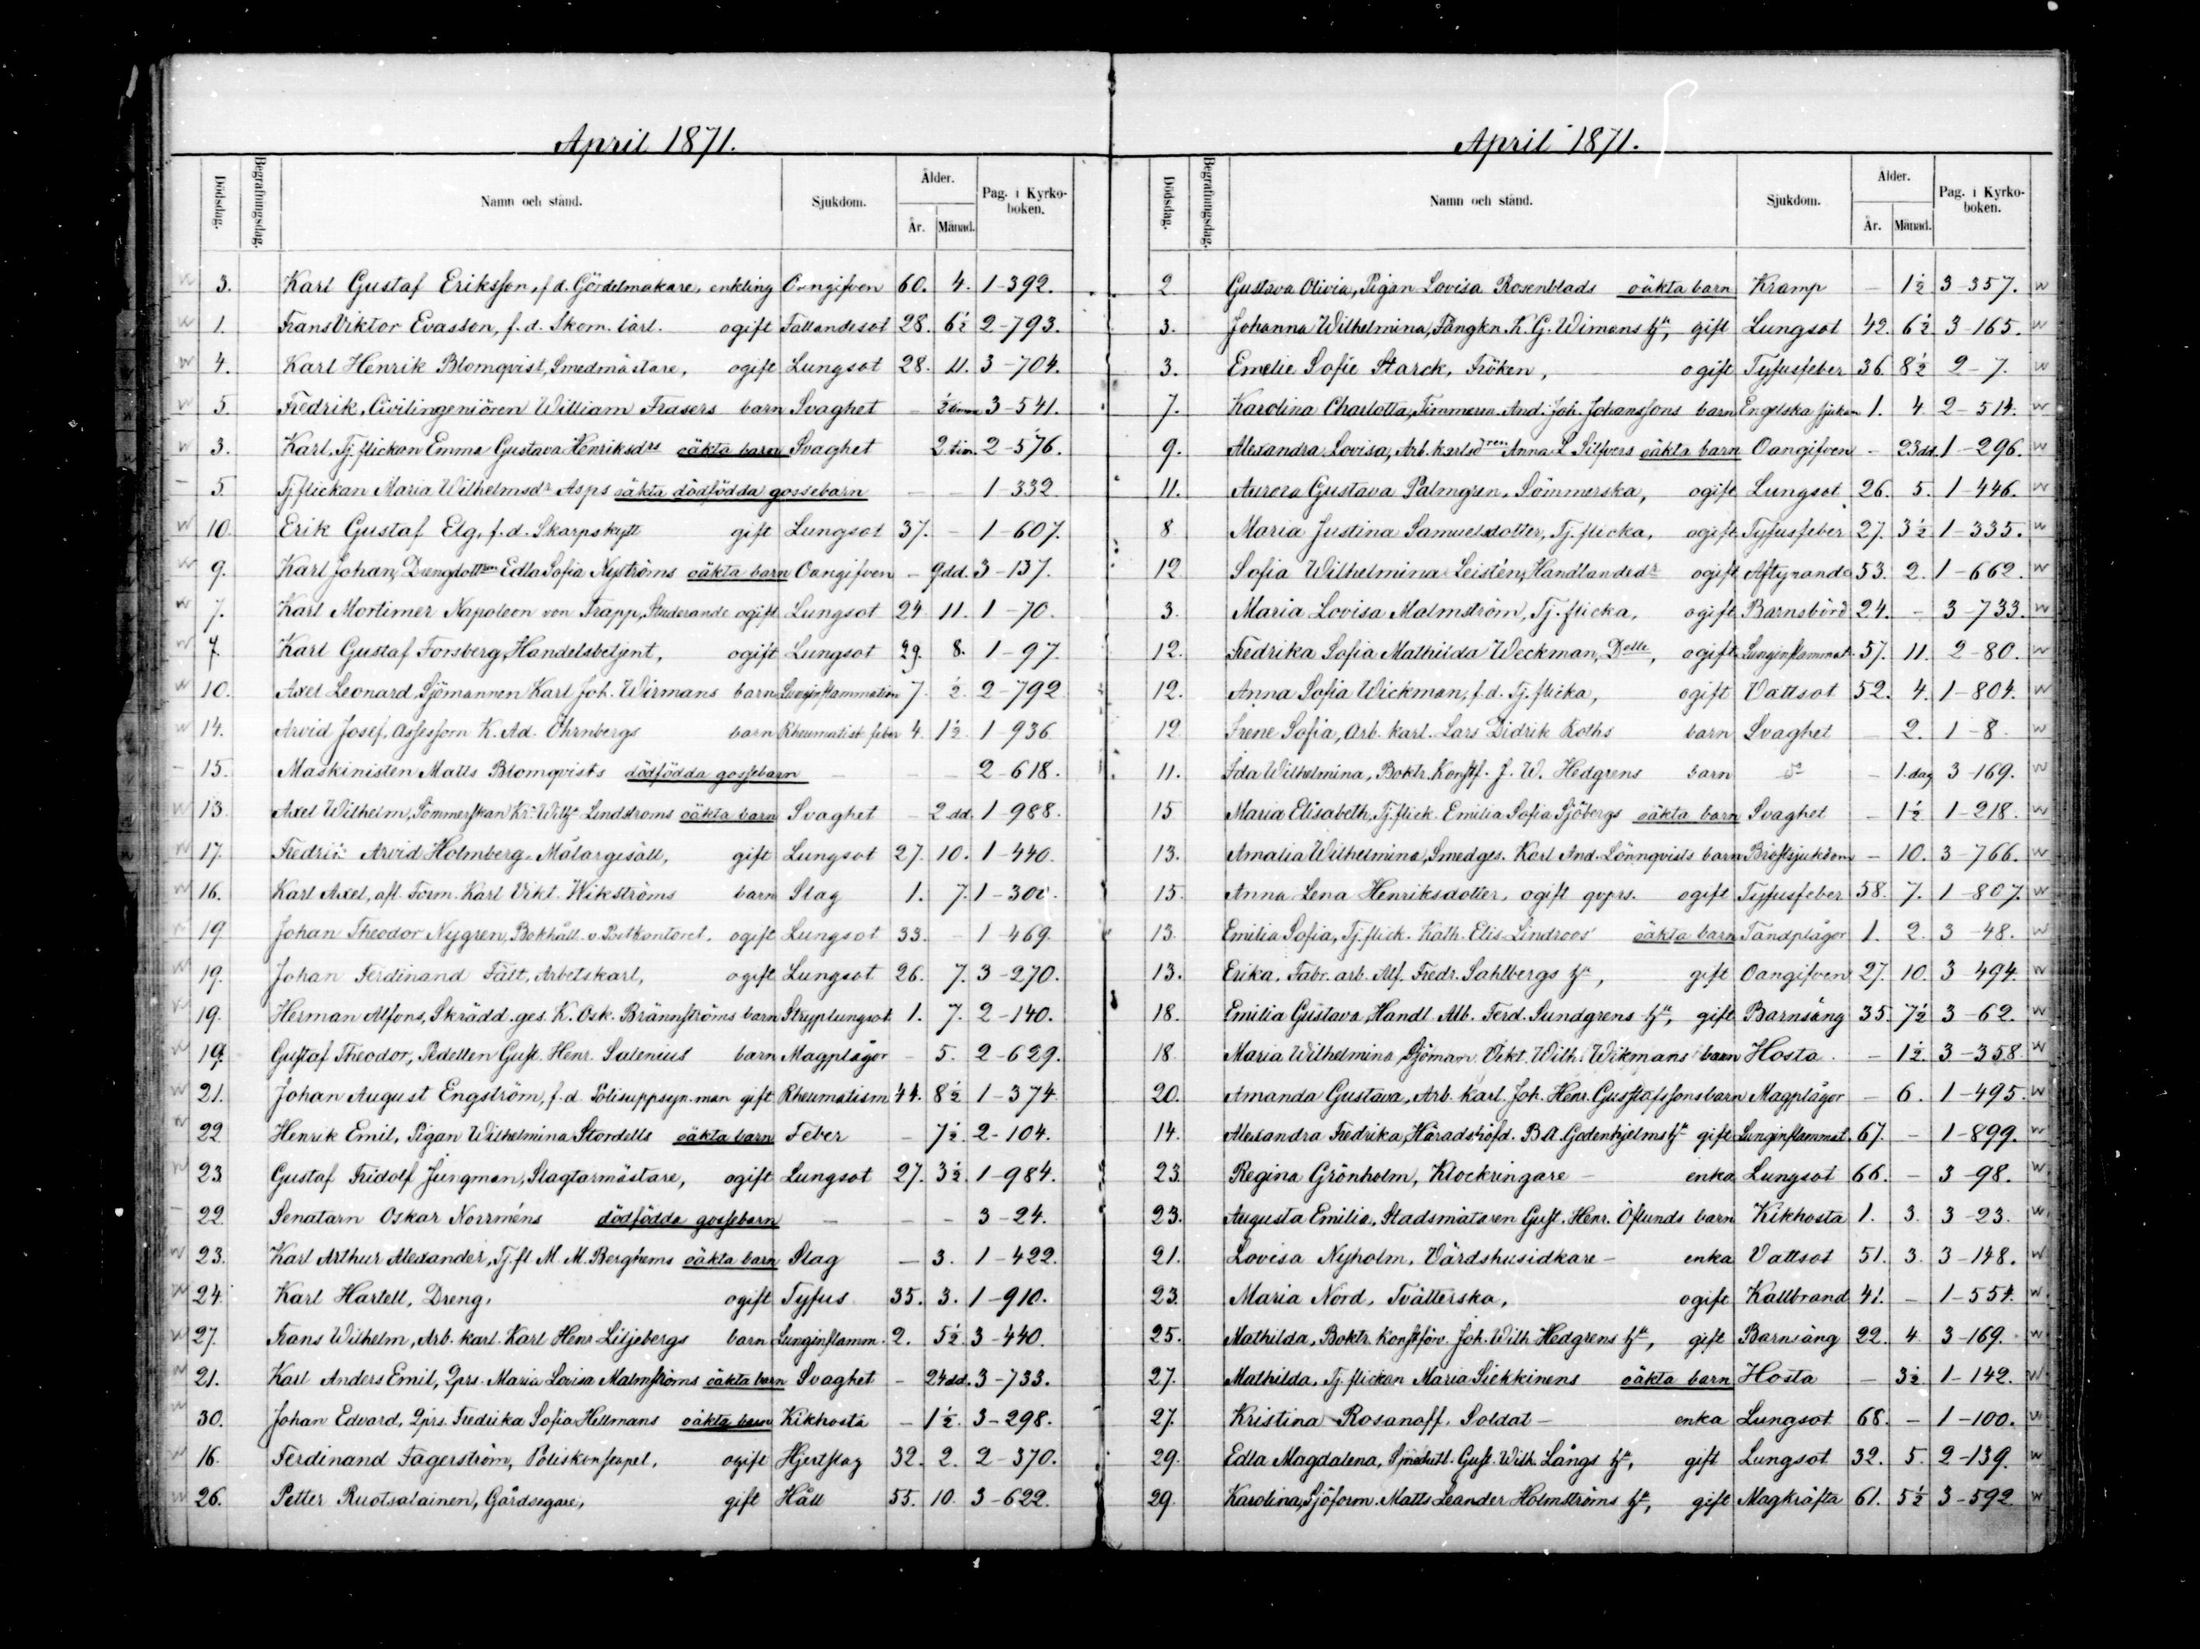 April 1871.
Dödsdag. Begrafningsdag. Namn och stånd. Sjukdom. Ålder. År. Månad. Pag. i Kyrkoboken.
3. Karl Gustaf Eriksson, f.d. Gördelmakare, enkling Oangifven 60. 4. 1-392.
1. Frans Viktor Evasson, f.d. Skom. lärl. ogift Fallandesot 28. 6½ 2-793.
4. Karl Henrik Blomqvist, Smedmästare, ogift Lungsot 28. 11. 3-704.
5. Fredrik, Civilingeniören William Frasers barn Svaghet - ½ timm. 3-541.
3. Karl, Tj.flickan Emma Gustava Henriksdrs oäkta barn Svaghet 2 tim. 2-576.
5. Tj.flickan Maria Wilhelmsdr Asps oäkta dödfödda gossebarn - - 1-332
10. Erik Gustaf Elg, f.d. Skarpskytt gift Lungsot 37. - 1-607.
9. Karl Johan, Drengdottren Edla Sofia Nyströms oäkta barn Oangifven - 9 dd. 3-137.
7. Karl Mortimer Napoleon von Trapp, Studerande ogift Lungsot 24 11. 1-70.
7. Karl Gustaf Forsberg, Handelsbetjent, ogift Lungsot 29. 8. 1-97.
10. Axel Leonard, Sjömannen Karl Joh. Wirmans barn Lunginflammation 7. ½. 2-792
14. Arvid Josef, Assessorn K. Ad. Öhrnbergs barn Rheumatisk feber 4. 1½ 1-936
15. Maskinisten Matts Blomqvists dödfödda gossebarn - - - 2-618.
13. Axel Wilhelm, Sömmerskan Kr. Wilh. Lindstroms oäkta barn Svaghet - 2 dd. 1-988.
17. Fredrik Arvid Holmberg, Målargesäll, gift Lungsot 27. 10. 1-440.
16. Karl Axel, afl. Form. Karl Vikt. Wikströms barn Slag 1. 7. 1-300.
19 Johan Theodor Nygren, Bokhåll. v. Postkontoret. ogift Lungsot 33. - 1-469.
19. Johan Ferdinand Fält, Arbetskarl, ogift Lungsot 26. 7. 3-270.
19. Herman Alfons, Skrädd.ges. K. Osk. Brännströms barn Stryplungsot 1. 7. 2-140.
19. Gustaf Theodor, Pedellen Gust. Henr. Salenius barn Magplågor - 5. 2-629.
21. Johan August Engström, f.d. Polisuppsyn.man gift Rheumatism 44. 8½ 1-374.
22. Henrik Emil, Pigan Wilhelmina Stordells oäkta barn Feber - 7½. 2-104.
23. Gustaf Fridolf Jungman, Slagtarmästare, ogift Lungsot 27. 3½. 1-984.
22. Senatorn Oskar Norrméns dödfödda gossebarn - - - 3-24.
23. Karl Arthur Alexander, Tj.fl. M. M. Berghems oäkta barn Slag - 3. 1-422.
24. Karl Hartell, Dreng, ogift Tyfus 35. 3. 1-910.
27. Frans Wilhelm, Arb. karl. Karl Henr Liljebergs barn Lunginflamm. 2. 5½ 3-440.
21. Karl Anders Emil, Qprs. Maria Lovisa Malmströms oäkta barn Svaghet - 24 dd. 3-733.
30. Johan Edvard, Qprs. Fredrika Sofia Hellmans oäkta barn Kikhosta - 1½. 3-298.
16. Ferdinand Fagerström, Poliskonstapel, ogift Hjertslag 32. 2. 2-370.
26. Petter Ruotsalainen, Gårdsegare, gift Håll 55. 10. 3-622.
April 1871.
Dödsdag. Begrafningsdag. Namn och stånd. Sjukdom. Ålder. År. Månad. Pag. i Kyrkoboken.
2 Gustava Olivia, Pigan Lovisa Rosenblads oäkta barn Kramp - 1½ 3-357.
3. Johanna Wilhelmina, Fångkn. K. G. Wimans hu, gift Lungsot 42. 6½ 3-165.
3. Emelie Sofie Starck, Fröken, ogift Tyfusfeber 36. 8½ 2-7.
7. Karolina Charlotta, Timmerm. And. Joh. Johanssons barn Engelska sjukan 1. 4. 2-514.
9. Alexandra Lovisa, Arb. karlsdren Anna L Silfvers oäkta barn Oangifven - 23 dd. 1-296.
11. Aurora Gustava Palmgren, Sömmerska, ogift Lungsot 26. 5. 1-446.
8 Maria Justina Samuelsdotter, Tj.flicka, ogift Tyfusfeber 27. 3½ 1-335.
12 Sofia Wilhelmina Leistén, Handlandedr ogift Aftynande 53. 2. 1-662.
3. Maria Lovisa Malmström, Tj.flicka, ogift Barnsbörd 24. - 3-733.
12. Fredrika Sofia Mathilda Weckman, Delle, ogift Lunginflammat. 57. 11. 2-80.
12. Anna Sofia Wickman, f.d. Tj.flicka, ogift Vattsot 52. 4. 1-804.
12 Irene Sofia, Arb. karl. Lars Didrik Roths barn Svaghet - 2. 1-8
11. Ida Wilhelmina, Boktr. Konstf. J. W. Hedgrens barn do - 1. dag 3-169.
15 Maria Elisabeth, Tj.flick. Emilia Sofia Sjöbergs oäkta barn Svaghet - 1½ 1-218.
13. Amalia Wilhelmina, Smedges. Karl And. Lönnqvists barn Bröstsjukdom - 10. 3-766.
15. Anna Lena Henriksdotter, ogift qvprs. ogift Tyfusfeber 58. 7. 1-807.
13. Emilia Sofia, Tj.flick. Kath. Elis Lindroos' oäkta barn Tandplågor 1. 2. 3-48.
13. Erika, Fabr. arb. Alf. Fredr. Sahlbergs hu, gift Oangifven 27. 10. 3-494.
18. Emilia Gustava, Handl. Alb. Ferd. Sundgrens hu, gift Barnsäng 35. 7½ 3-62.
18. Maria Wilhelmina, Sjöman. Vikt. Wilh. Wikmans barn Hosta. - 1½. 3-358.
20. Amanda Gustava, Arb. karl. Joh. Henr. Gustafssons barn Magplågor - 6. 1-495.
14. Alexandra Fredrika, Häradshöfd. B. A. Godenhjelms hu gift Lunginflammat. 67. - 1-899.
23. Regina Grönholm, Klockringare - enka Lungsot 66. - 3-98.
23. Augusta Emilia, Stadsmätaren Gust. Henr. Öflunds barn Kikhosta 1. 3. 3-23.
21. Lovisa Nyholm, Värdshusidkare - enka Vattsot 51. 3. 3-148.
23. Maria Nord, Tvätterska, ogift Kallbrand 41. - 1-554.
25. Mathilda, Boktr. konstförv. Joh. Wilh. Hedgrens hu, gift Barnsäng 22. 4. 3-169.
27. Mathilda, Tj.flickan Maria Siekkinens oäkta barn Hosta - 3½ 1-142.
27. Kristina Rosanoff, Soldat - enka Lungsot 68. - 1-100.
29. Edla Magdalena, Gust. Wilh. Långs hu, gift Lungsot 32. 5. 2-139.
29. Karolina, Sjöform. Matts Leander Holmströms hu, gift Magkräfta 61. 5½ 3-592